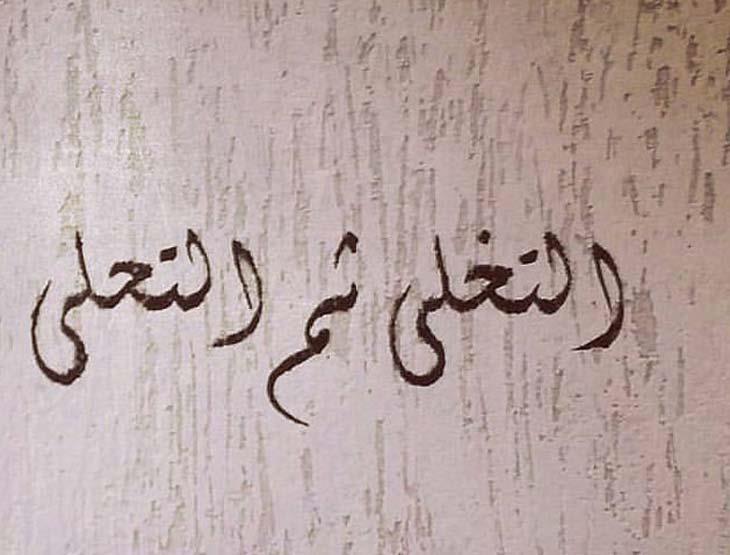 التخلى ثم التحلى